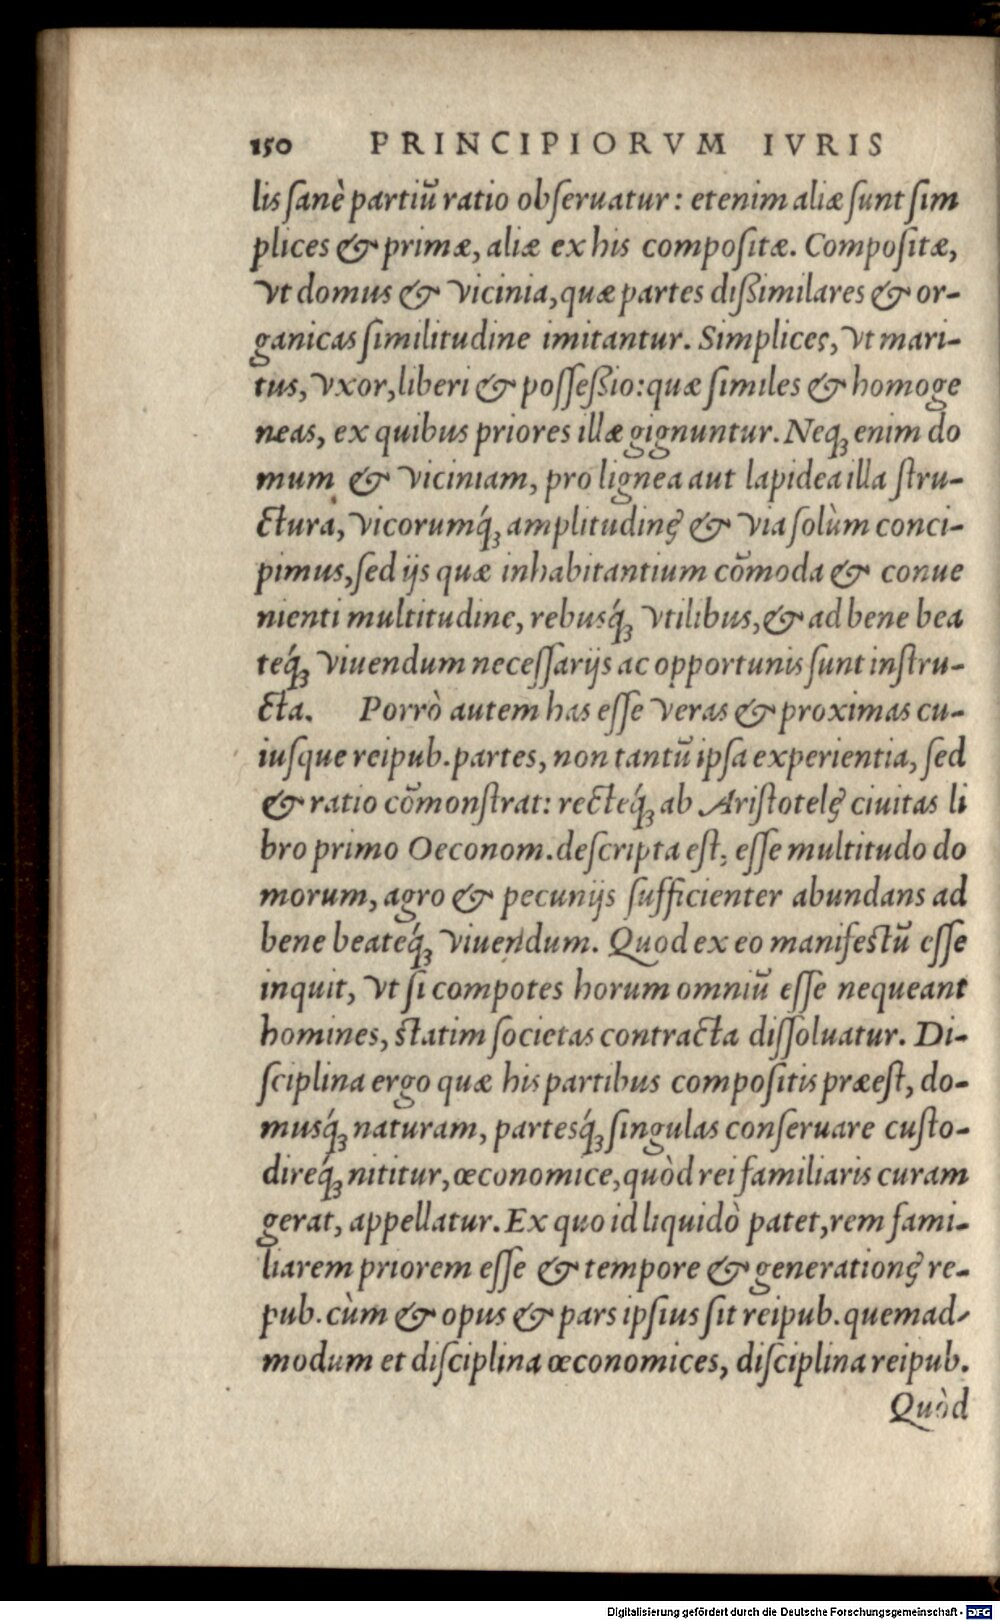 150 PRINCIPIORVM IVRIS
lis ſanè partiũ ratio obſeruatur: etenim aliæ ſunt ſim
plices & primæ, aliæ ex his compoſitæ. Compoſitæ,
vt domus & vicinia, quæ partes dißimilares & or-
ganicas ſimilitudine imitantur. Simplices, vt mari-
tus, vxor, liberi & poſſeßio: quæ ſimiles & homoge
neas, ex quibus priores illæ gignuntur. Neq; enim do
mum & viciniam, pro lignea aut lapidea illa ſtru-
ctura, vicorumq́; amplitudinę & via ſolùm conci-
pimus, ſed ijs quæ inhabitantium cõmoda & conue
nienti multitudine, rebusq́; vtilibus, & ad bene bea
teq́; viuendum neceſſarijs ac opportunis ſunt inſtru-
cta. Porrò autem has eſſe veras & proximas cu-
iuſque reipub. partes, non tantũ ipſa experientia, ſed
& ratio cõmonſtrat: recteq́; ab Ariſtotelę ciuitas li
bro primo Oeconom. deſcripta eſt, eſſe multitudo do
morum, agro & pecunijs ſufficienter abundans ad
bene beateq́; viuendum. Quod ex eo manifeſtũ eſſe
inquit, vt ſi compotes horum omniũ eſſe nequeant
homines, ſtatim ſocietas contracta diſſoluatur. Di-
ſciplina ergo quæ his partibus compoſitis præeſt, do-
musq́; naturam, partesq́; ſingulas conſeruare cuſto-
direq́; nititur, œconomice, quòd rei familiaris curam
gerat, appellatur. Ex quo id liquidò patet, rem fami-
liarem priorem eſſe & tempore & generationę re-
pub. cùm & opus & pars ipſius ſit reipub. quemad-
modum et diſciplina œconomices, diſciplina reipub.
Quòd
Digitalisierung gefördert durch die Deutsche Forschungsgemeinschaft - DFG